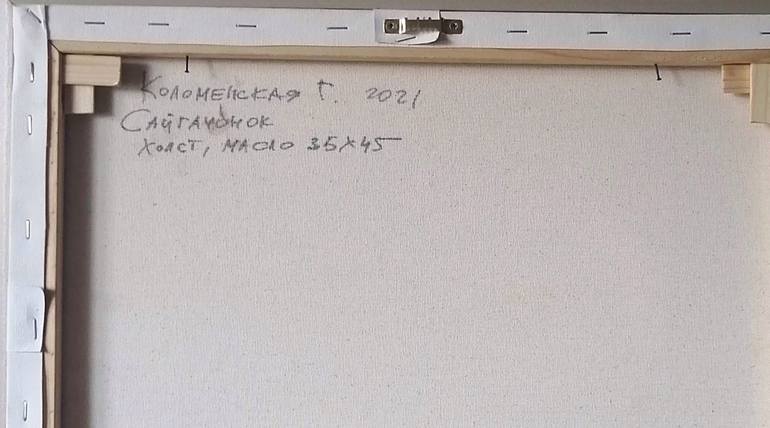 Коломенская Г. 2021
Сайгачонок
холст, масло 35х45